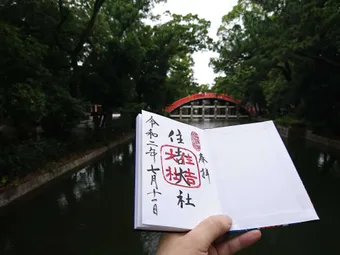 奉拝
住吉大社
住吉大社
令和二年七月十一日